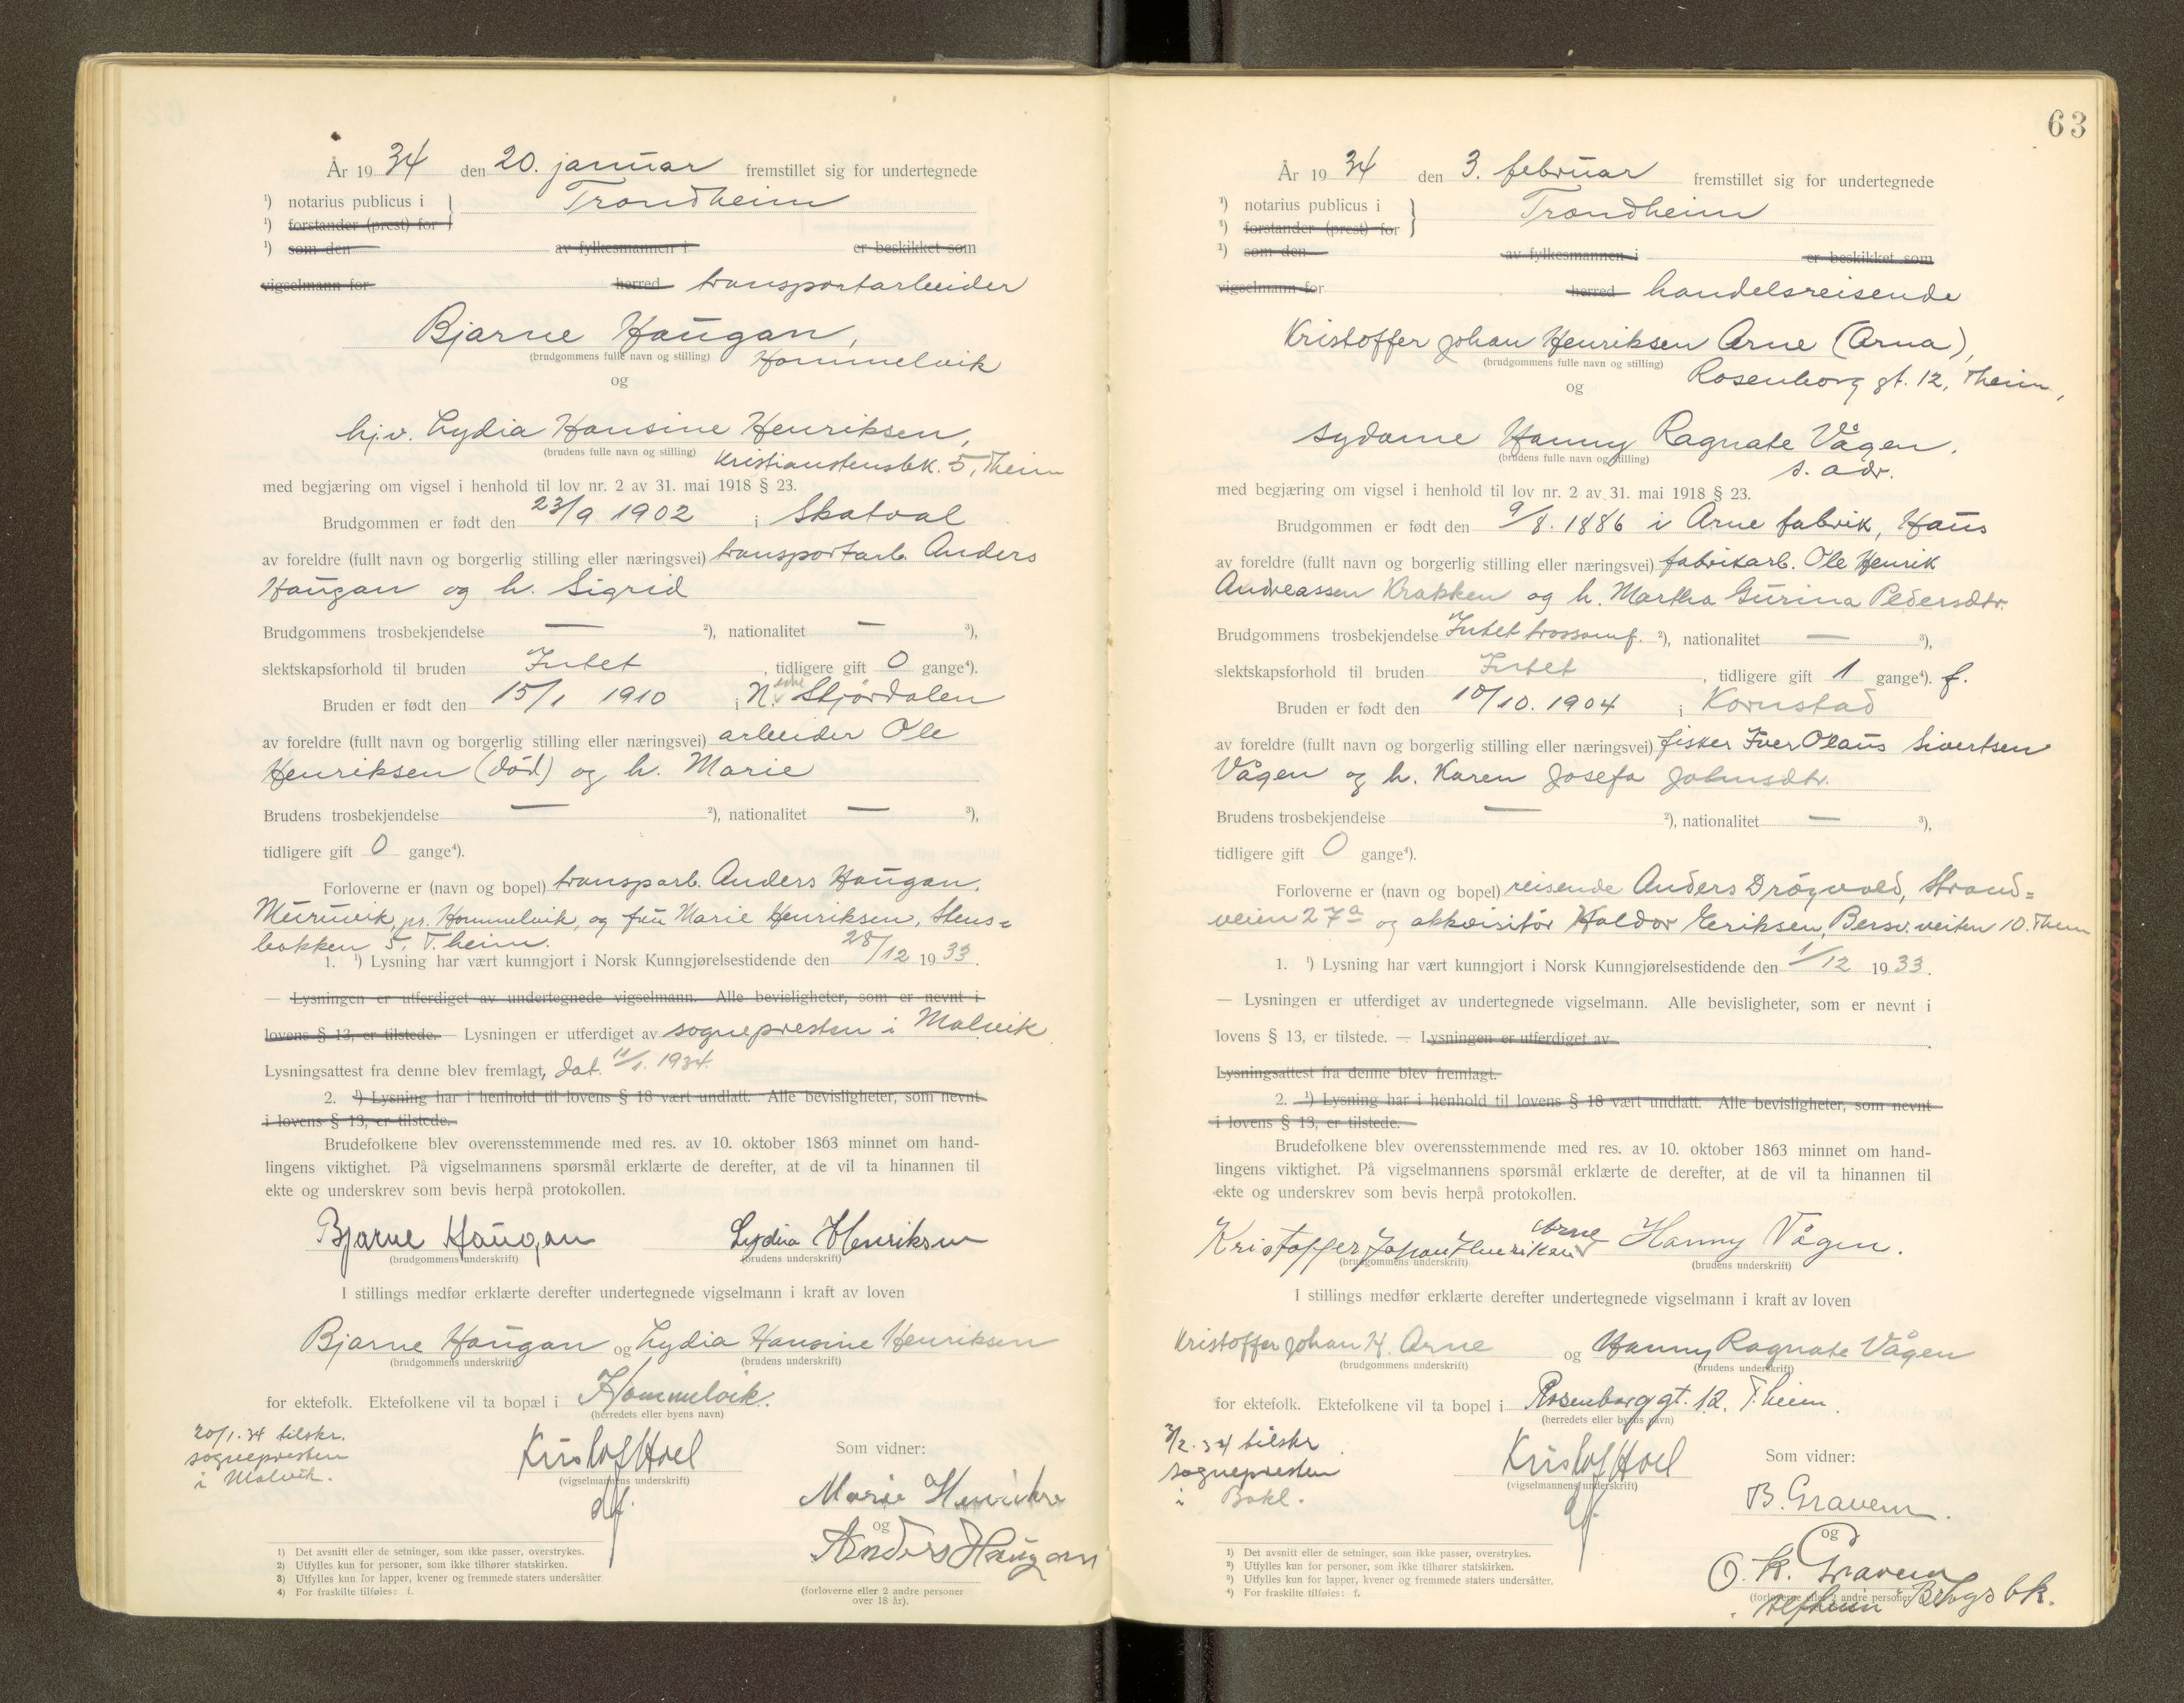 År 19 34 den 20. januar fremstillet sig for undertegnede
¹) notarius publicus i } Trondheim
¹) forstander (prest) for
¹) som den av fylkesmannen i er beskikket som
vigselmann for herred transportarbeider
Bjarne Haugan,
(brudgommens fulle navn og stilling) Hommelvik
og
hj.v. Lydia Hansine Henriksen,
(brudens fulle navn og stilling) Kristianstensbk. 5, Theim
med begjæring om vigsel i henhold til lov nr. 2 av 31. mai 1918 § 23.
Brudgommen er født den 23/9 1902 i Skatval
av foreldre (fullt navn og borgerlig stilling eller næringsvei) transportarb. Anders
Haugan og h. Sigrid
Brudgommens trosbekjendelse — ²), nationalitet — ³),
slektskapsforhold til bruden Intet, tidligere gift 0 gange⁴).
Bruden er født den 15/1 1910 i N. Stjørdalen
av foreldre (fullt navn og borgerlig stilling eller næringsvei) arbeider Ole
Henriksen (død) og h. Marie
Brudens trosbekjendelse — ²), nationalitet — ³),
tidligere gift 0 gange⁴).
Forloverne er (navn og bopel) transparb. Anders Haugan,
Muruvik, pr. Hommelvik, og fru Marie Henriksen, Stens=
bakken 5, T.heim.
1. ¹) Lysning har vært kunngjort i Norsk Kunngjørelsestidende den 28/12 19 33.
— Lysningen er utferdiget av undertegnede vigselmann. Alle bevisligheter, som er nevnt i
lovens § 13, er tilstede. — Lysningen er utferdiget av sognepresten i Malvik
Lysningsattest fra denne blev fremlagt, dat. 11/1. 1934.
2. ¹) Lysning har i henhold til lovens § 18 vært undlatt. Alle bevisligheter, som nevnt
i lovens § 13, er tilstede.
Brudefolkene blev overensstemmende med res. av 10. oktober 1863 minnet om hand-
lingens viktighet. På vigselmannens spørsmål erklærte de derefter, at de vil ta hinannen til
ekte og underskrev som bevis herpå protokollen.
Bjarne Haugan Lydia Henriksen
(brudgommens underskrift) (brudens underskrift)
I stillings medfør erklærte derefter undertegnede vigselmann i kraft av loven
Bjarne Haugan og Lydia Hansine Henriksen
(brudgommens underskrift) (brudens underskrift)
for ektefolk. Ektefolkene vil ta bopæl i Hommelvik.
(herredets eller byens navn)
20/1. 34 tilskr.
sognepresten
i Malvik.
Kristof Hoel
(vigselmannens underskrift)
Som vidner:
Marie Henrikse
og
Anders Haugan
(forloverne eller 2 andre personer
over 18 år).
1) Det avsnitt eller de setninger, som ikke passer, overstrykes.
2) Utfylles kun for personer, som ikke tilhører statskirken.
3) Utfylles kun for lapper, kvener og fremmede staters undersåtter
4) For fraskilte tilføies: f.
63
År 19 34 den 3. februar fremstillet sig for undertegnede
¹) notarius publicus i } Trondheim
¹) forstander (prest) for
¹) som den av fylkesmannen i er beskikket som
vigselmann for herred handelsreisende
Kristoffer Johan Henriksen Arne (Arna),
(brudgommens fulle navn og stilling) Rosenborg gt. 12, Theim,
og
sydame Hanny Ragnate Vågen,
(brudens fulle navn og stilling) s. adr.
med begjæring om vigsel i henhold til lov nr. 2 av 31. mai 1918 § 23.
Brudgommen er født den 9/8. 1886 i Arne fabrik, Haus
av foreldre (fullt navn og borgerlig stilling eller næringsvei) fabrikarb. Ole Henrik
Andreassen Krakken og h. Martha Gurina Pedersdtr.
Brudgommens trosbekjendelse Intet trossamf. ²), nationalitet — ³),
slektskapsforhold til bruden Intet, tidligere gift 1 gange⁴). f.
Bruden er født den 10/10. 1904 i Kornstad
av foreldre (fullt navn og borgerlig stilling eller næringsvei) fisker Iver Olaus Sivertsen
Vågen og h. Karen Josefa Johnsdtr.
Brudens trosbekjendelse — ²), nationalitet — ³),
tidligere gift 0 gange⁴).
Forloverne er (navn og bopel) reisende Anders Drågvold, Strand=
veien 27a og akkvisitör Haldor Eriksen, Bersv. veiten 10. Theim
1. ¹) Lysning har vært kunngjort i Norsk Kunngjørelsestidende den 1/12 19 33.
— Lysningen er utferdiget av undertegnede vigselmann. Alle bevisligheter, som er nevnt i
lovens § 13, er tilstede. — Lysningen er utferdiget av
Lysningsattest fra denne blev fremlagt.
2. ¹) Lysning har i henhold til lovens § 18 vært undlatt. Alle bevisligheter, som nevnt
i lovens § 13, er tilstede.
Brudefolkene blev overensstemmende med res. av 10. oktober 1863 minnet om hand-
lingens viktighet. På vigselmannens spørsmål erklærte de derefter, at de vil ta hinannen til
ekte og underskrev som bevis herpå protokollen.
Kristoffer Johan Henriksen Arne Hanny Vågen.
(brudgommens underskrift) (brudens underskrift)
I stillings medfør erklærte derefter undertegnede vigselmann i kraft av loven
Kristoffer Johan H. Arne og Hanny Ragnate Vågen
(brudgommens underskrift) (brudens underskrift)
for ektefolk. Ektefolkene vil ta bopel i Rosenborg gt. 12. T.heim.
(herredets eller byens navn)
3/2. 34 tilskr
sognepresten
i Bakl.
Kristof Hoel
(vigselmannens underskrift)
Som vidner:
B. Gravem.
og
O. K. Gravem
(forloverne eller 2 andre personer Bebgs bk.
¹) Det avsnitt eller de setninger, som ikke passer, overstrykes.
²) Utfylles kun for personer, som ikke tilhører statskirken.
³) Utfylles kun for lapper, kvener og fremmede staters undersåtter.
⁴) For fraskilte tilføies: f.